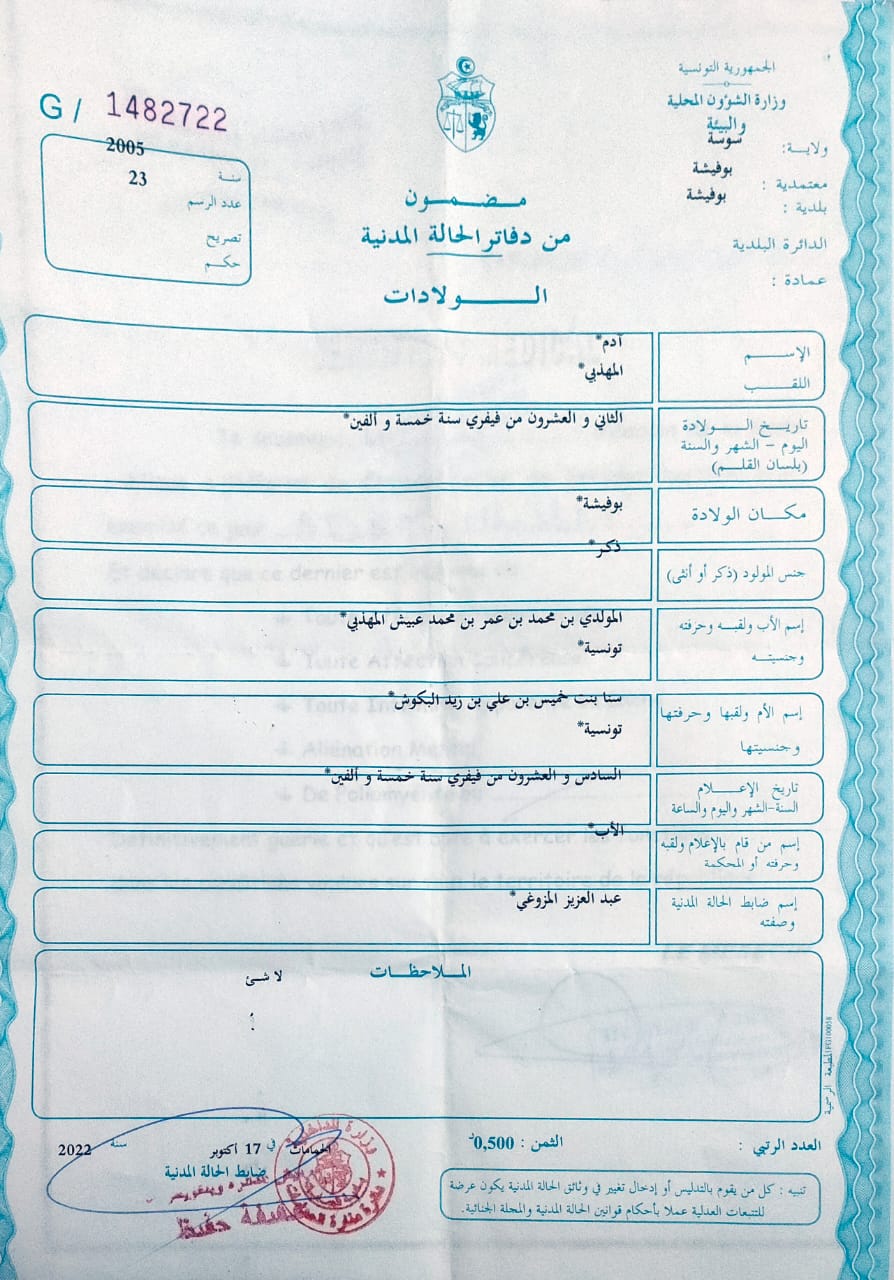 الجمهورية التونسية
وزارة الشؤون المحلية
والبيئة
ولاية: سوسة
معتمدية : بوفيشة
بلدية : بوفيشة
الدائرة البلدية
عمادة :
G / 1482722
سنة 2005
عدد الرسم 23
تصريح
حكم
مضمون
من دفاتر الحالة المدنية
الولادات
الإسم آدم*
اللقب المهذبي*
تاريخ الولادة الثاني و العشرون من فيفري سنة خمسة و ألفين*
اليوم - الشهر والسنة
(بلسان القلم)
مكان الولادة بوفيشة*
جنس المولود (ذكر أو أنثى) ذكر*
إسم الأب ولقبه وحرفته المولدي بن محمد بن عمر بن محمد عبيش المهذبي*
وجنسيته تونسية*
إسم الأم ولقبها وحرفتها سنا بنت خميس بن علي بن زيد البكوش*
وجنسيتها تونسية*
تاريخ الإعلام السادس و العشرون من فيفري سنة خمسة و ألفين*
السنة-الشهر واليوم والساعة
إسم من قام بالإعلام ولقبه الأب*
وحرفته أو المحكمة
إسم ضابط الحالة المدنية عبد العزيز المزوغي*
وصفته
الملاحظات
لا شئ
المطبعة الرسمية
العدد الرتبي :
الثمن : 0,500د
الحمامات في 17 أكتوبر سنة 2022
ضابط الحالة المدنية
تنبيه : كل من يقوم بالتدليس أو إدخال تغيير في وثائق الحالة المدنية يكون عرضة
للتتبعات العدلية عملا بأحكام قوانين الحالة المدنية والمجلة الجنائية.
وزارة الداخلية
حفيظ